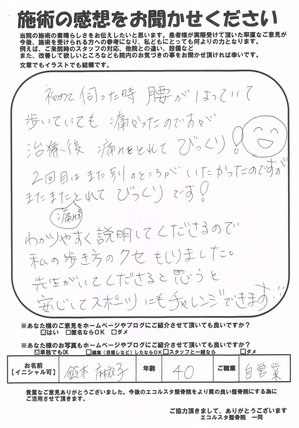 施術の感想をお聞かせください
当院の施術の素晴らしさをお伝えしたいと思います。患者様が実際受けて頂いた率直なご意見が
今後、施術を受けられる方への参考になり、私どもにとっても何よりの力となります。
例えば、ご来院時のスタッフの対応、他院との違い、設備など
また、改善して欲しいところなども院内のお気づきの事をお聞かせ頂ければ幸いです。
文章でもイラストでも結構です。
初めて伺った時 腰がはっていて
歩いていても 痛かったのですが
治療後 痛みもとれて びっくり!
2回目はまた別のところが いたかったのですが
またまたとれて びっくり です!
痛みが
わかりやすく 説明してくださるので
私の歩き方のクセ もしりました。
先生がいてくださると思うと
安心してスポーツにもチャレンジできます!!
※あなた様のご意見をホームページやブログにご紹介させて頂いても良いですか?
はい 匿名ならOK ダメ
※あなた様のお写真もホームページやブログにご紹介させて頂いても良いですか?
単独でもOK 編集(目隠しなど)したならOK スタッフと一緒なら ダメ
お名前
【イニシャル可】
鈴木 麻衣子
年齢
40
ご職業
自営業
貴重なご意見ありがとうございました。今後のエコルスタ整骨院をより質の良い整骨院にする為に
ご活用させて頂きます。
ご協力頂きまして、ありがとうございます
エコルスタ整骨院 一同